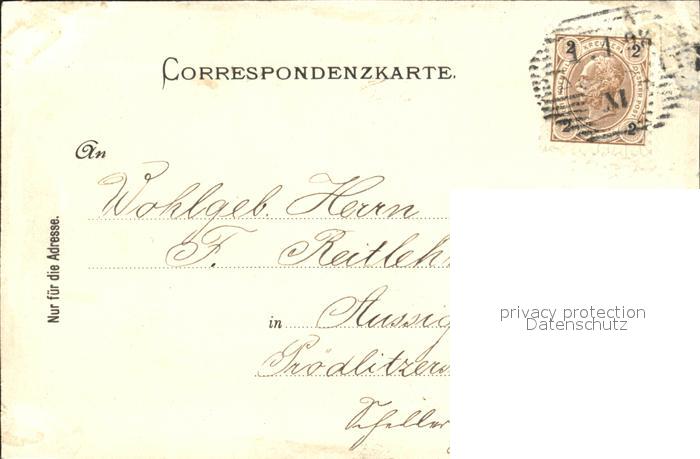 CORRESPONDENZKARTE.
2 KREUZER 2
XI
2 2
An
Wohlgeb. Herrn
F. Reitleh
in Aussig
Prödlitzers
Schiller
Nur für die Adresse.
privacy protection
Datenschutz